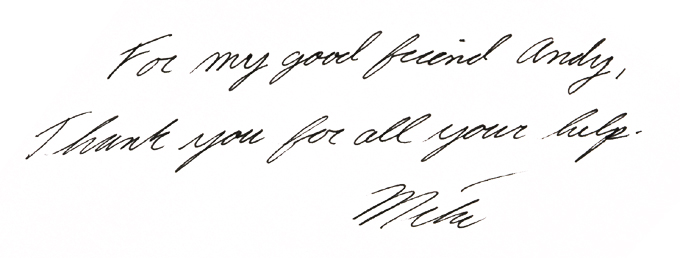 For my good friend Andy,
Thank you for all your help.
Mike